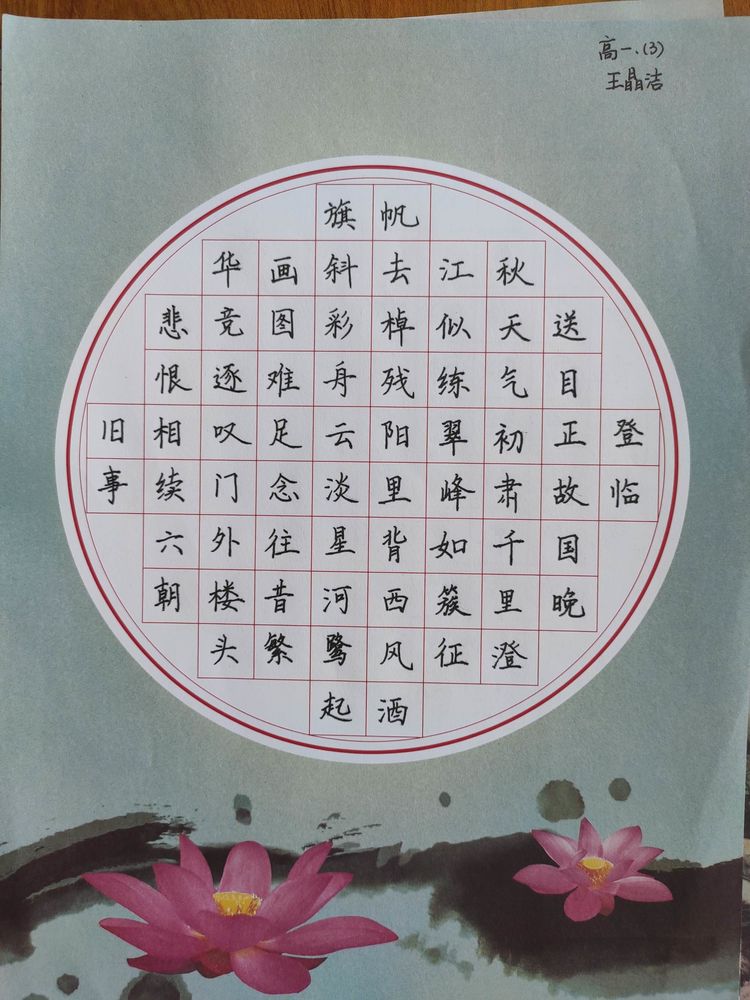 高一.(3)
王晶洁
登临
送目正故国晚
秋天气初肃千里澄
江似练翠峰如簇征
帆去棹残阳里背西风酒
旗斜彩舟云淡星河鹭起
画图难足念往昔繁
华竞逐叹门外楼头
悲恨相续六朝
旧事